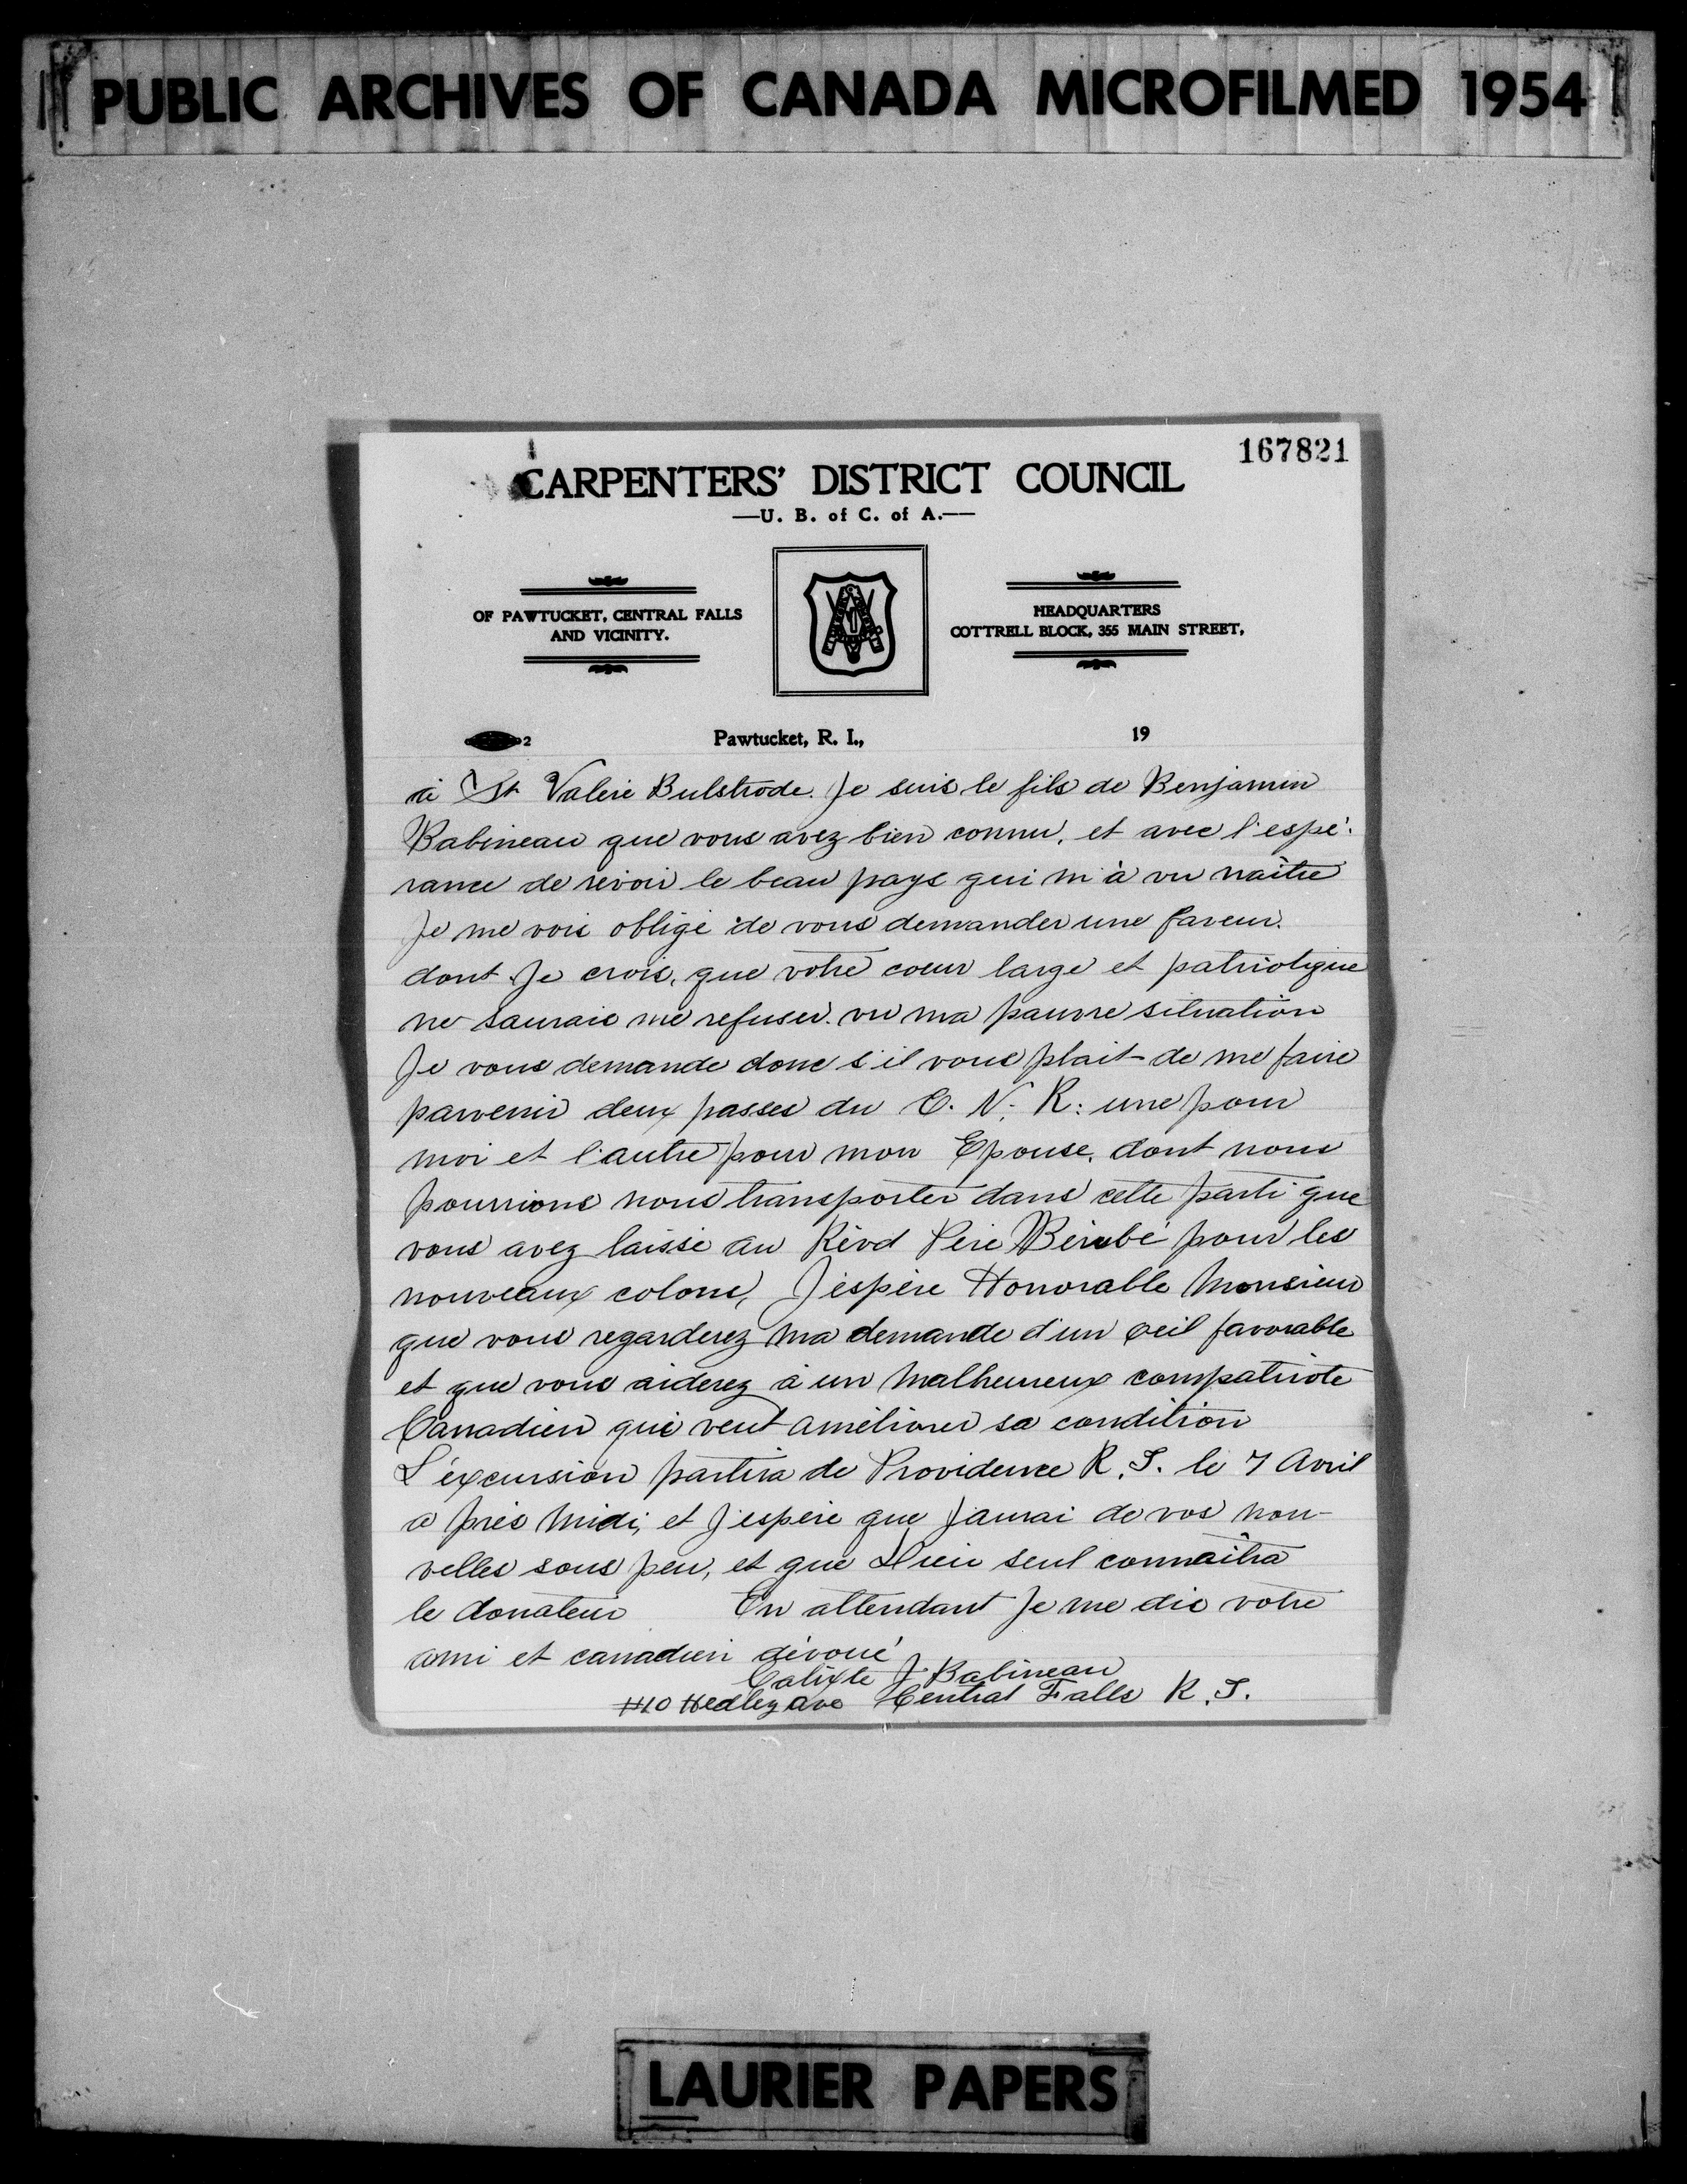 PUBLIC ARCHIVES OF CANADA MICROFILMED 1954
167821
CARPENTERS' DISTRICT COUNCIL
—U. B. of C. of A.—
OF PAWTUCKET, CENTRAL FALLS
AND VICINITY.
HEADQUARTERS
COTTRELL BLOCK, 355 MAIN STREET,
2 Pawtucket, R. I., 19
à St Valere Bulstrode. Je suis le fils de Benjamin
Babineau que vous avez bien connu, et avec l'espé-
rance de revoir le beau pays qui m'à vu naître
Je me vois obligé de vous demander une faveur.
dont Je crois, que votre coeur large et patriotique
ne saurais me refuser. vu ma pauvre situation
Je vous demande donc s'il vous plait de me faire
parvenir deux passes du C. N. R: une pour
moi et l'autre pour mon Epouse, dont nous
pourrions nous transporter dans cette parti que
vous avez laissé au Révd Père Bérubé pour les
nouveaux colons, J'éspère Honorable Monsieur
que vous regarderez ma demande d'un oeil favorable
et que vous aiderez à un malheureux compatriote
Canadien qui veut améliorer sa condition
L'éxcursion partira de Providence R. I. le 7 Avril
a près midi, et J'espère que J'aurai de vos nou-
velles sous peu, et que Dieu seul connaîtra
le donateur En attendant Je me dis votre
ami et canadien dévoué
Calixte J. Babineau
#10 Hedley ave Central Falls R. I.
LAURIER PAPERS